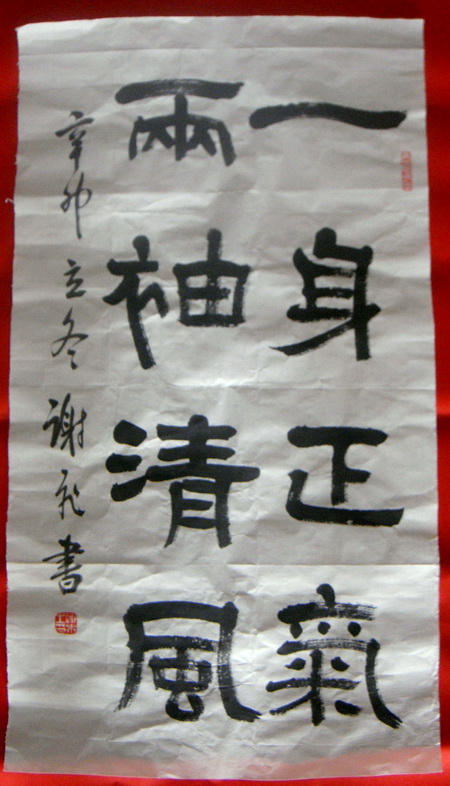 一身正氣
兩袖清風
辛卯立冬謝飛書